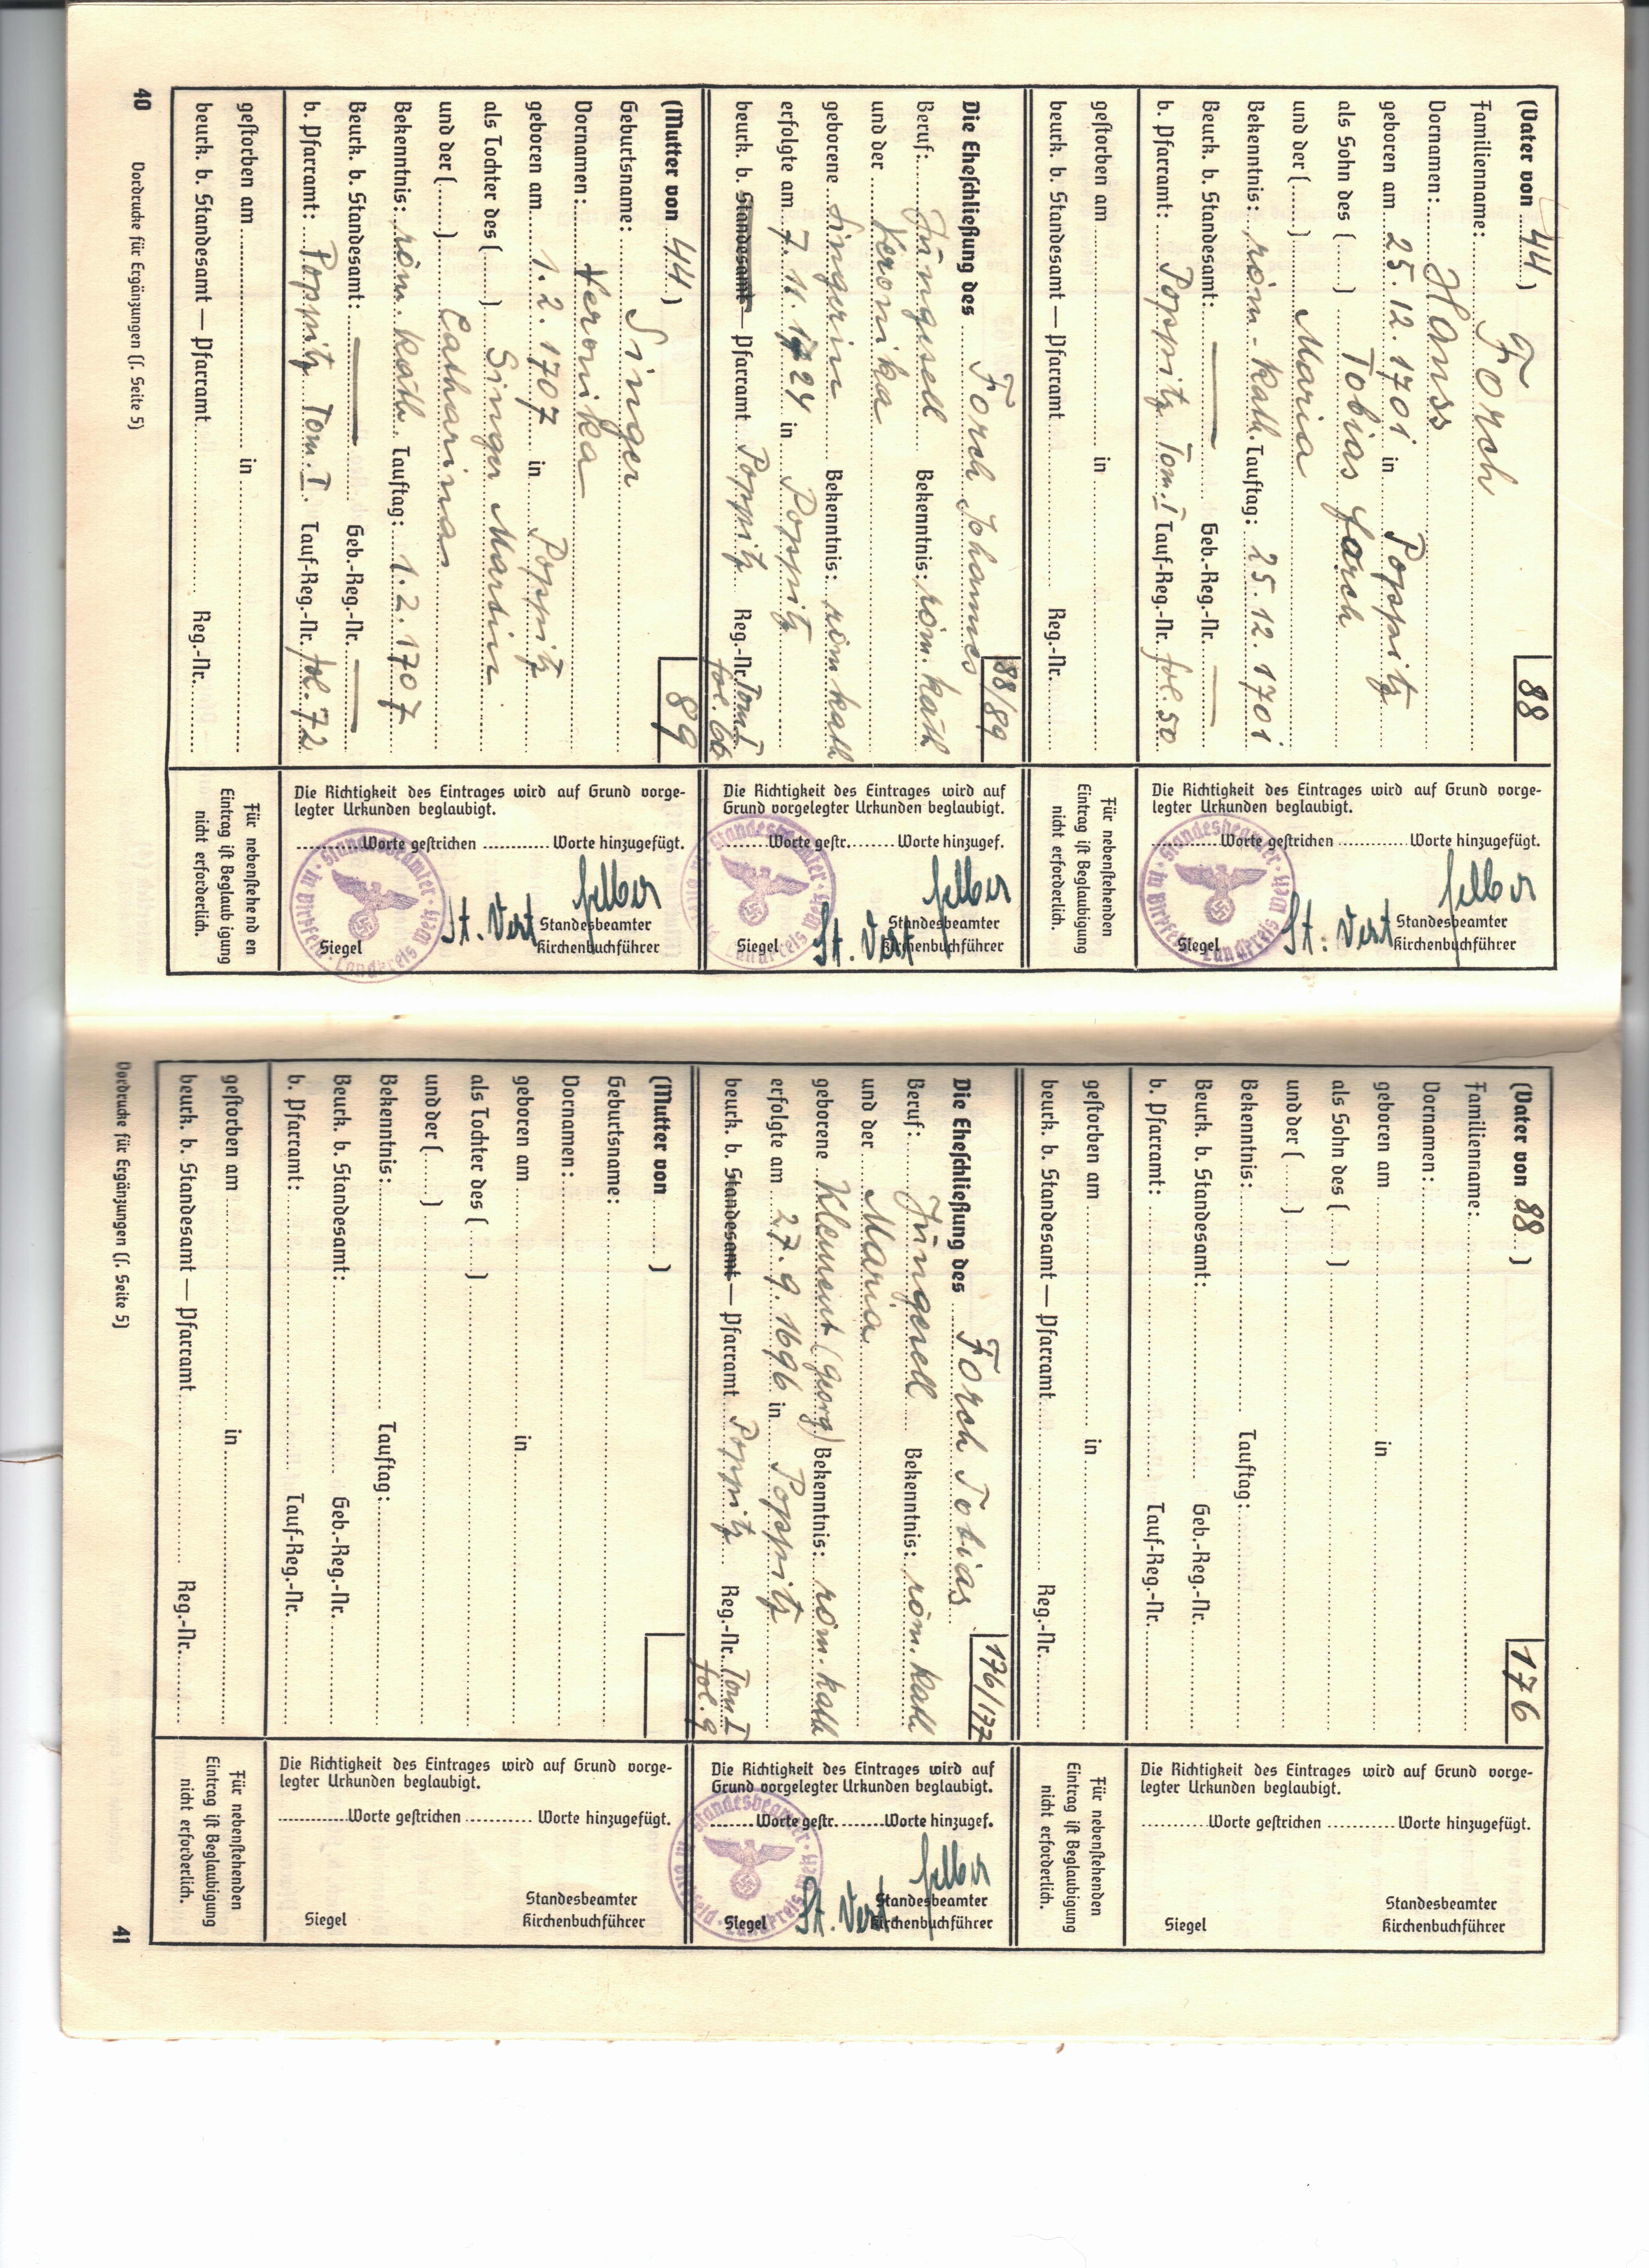 (Vater von 44)
88
Familienname: Forch
Vornamen: Hanss
geboren am 25.12.1701 in Poppitz
als Sohn des (......) Tobias Forch
und der (......) Maria
Bekenntnis: röm-kath. Tauftag: 25.12.1701
Beurk. b. Standesamt: Geb.-Reg.-Nr.
b. Pfarramt: Poppitz Tom. I Tauf-Reg.-Nr. fol. 50
gestorben am in
beurk. b. Standesamt — Pfarramt Reg.-Nr.
Die Richtigkeit des Eintrages wird auf Grund vorge-
legter Urkunden beglaubigt.
Worte gestrichen Worte hinzugefügt.
St. Vert
Standesbeamter
Siegel Kirchenbuchführer
Für nebenstehenden
Eintrag ist Beglaubigung
nicht erforderlich.
Die Eheschließung des Forch Johannes
88/89
Beruf: Jüngesell Bekenntnis: röm. kath
und der Veronika
geborene Singerin Bekenntnis: röm kath
erfolgte am 7.11.1724 in Poppitz
beurk. b. Standesamt — Pfarramt Poppitz Reg.-Nr. Tom I
fol. 66
Die Richtigkeit des Eintrages wird auf
Grund vorgelegter Urkunden beglaubigt.
Worte gestr. Worte hinzugef.
St. Vert
Standesbeamter
Siegel Kirchenbuchführer
(Mutter von 44)
89
Geburtsname: Singer
Vornamen: Veronika
geboren am 1.2.1707 in Poppitz
als Tochter des (......) Singer Martin
und der (......) Catharina
Bekenntnis: röm. kath. Tauftag: 1.2.1707
Beurk. b. Standesamt: Geb.-Reg.-Nr.
b. Pfarramt: Poppitz Tom. I Tauf-Reg.-Nr. fol. 72
gestorben am in
beurk. b. Standesamt — Pfarramt Reg.-Nr.
Die Richtigkeit des Eintrages wird auf Grund vorge-
legter Urkunden beglaubigt.
Worte gestrichen Worte hinzugefügt.
St. Vert
Standesbeamter
Siegel Kirchenbuchführer
Für nebenstehenden
Eintrag ist Beglaubigung
nicht erforderlich.
40 Vordrucke für Ergänzungen (s. Seite 5)
(Vater von 88)
176
Familienname:
Vornamen:
geboren am in
als Sohn des (......)
und der (......)
Bekenntnis: Tauftag:
Beurk. b. Standesamt: Geb.-Reg.-Nr.
b. Pfarramt: Tauf-Reg.-Nr.
gestorben am in
beurk. b. Standesamt — Pfarramt Reg.-Nr.
Die Richtigkeit des Eintrages wird auf Grund vorge-
legter Urkunden beglaubigt.
Worte gestrichen Worte hinzugefügt.
Standesbeamter
Siegel Kirchenbuchführer
Für nebenstehenden
Eintrag ist Beglaubigung
nicht erforderlich.
Die Eheschließung des Forch Tobias
176/177
Beruf: Jüngesell Bekenntnis: röm. kath
und der Maria
geborene Klement (Georg) Bekenntnis: röm. kath
erfolgte am 27.9.1696 in Poppitz
beurk. b. Standesamt — Pfarramt Poppitz Reg.-Nr. Tom I
fol. 9
Die Richtigkeit des Eintrages wird auf
Grund vorgelegter Urkunden beglaubigt.
Worte gestr. Worte hinzugef.
St. Vert
Standesbeamter
Siegel Kirchenbuchführer
(Mutter von )
Geburtsname:
Vornamen:
geboren am in
als Tochter des (......)
und der (......)
Bekenntnis: Tauftag:
Beurk. b. Standesamt: Geb.-Reg.-Nr.
b. Pfarramt: Tauf-Reg.-Nr.
gestorben am in
beurk. b. Standesamt — Pfarramt Reg.-Nr.
Die Richtigkeit des Eintrages wird auf Grund vorge-
legter Urkunden beglaubigt.
Worte gestrichen Worte hinzugefügt.
Standesbeamter
Siegel Kirchenbuchführer
Für nebenstehenden
Eintrag ist Beglaubigung
nicht erforderlich.
Vordrucke für Ergänzungen (s. Seite 5) 41